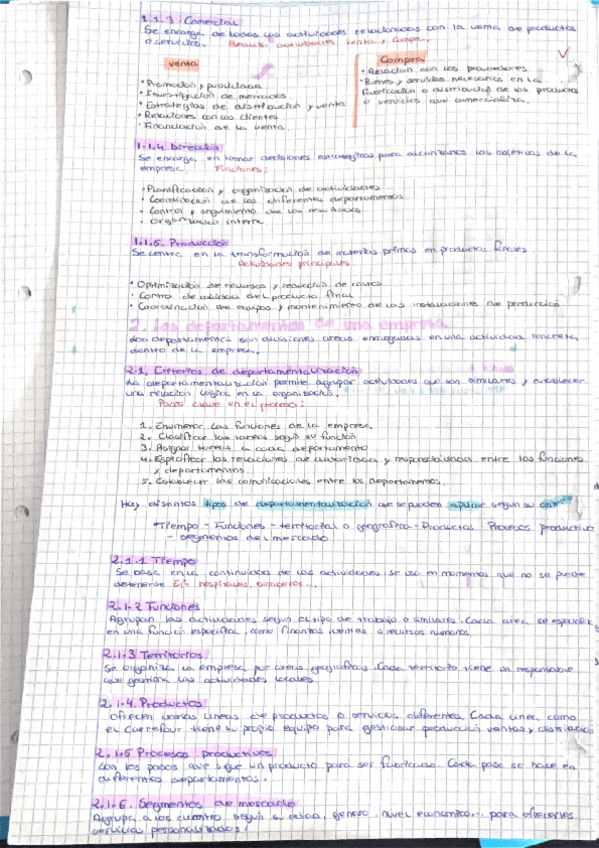 1.1.3 Comercial
Se encarga de todas las actividades relacionadas con la venta de productos
o servicios. actividades venta y compra.
venta
• Promoción y publicidad
• Investigación de mercados
• Estrategias de distribución y venta
• Relaciones con los clientes
• Financiación de la venta.
Compra
• Relación con los proveedores
• Bienes y servicios necesarios en la
fabricación o distribución de los productos
o servicios que comercializa.
1.1.4 Dirección
Se encarga en tomar decisiones estratégicas para alcanzar los objetivos de la
empresa. Funciones:
• Planificación y organización de actividades
• Coordinación de los diferentes departamentos
• Control y seguimiento de los resultados
• Organización interna
1.1.5. Producción
Se centra en la transformación de materias primas en productos finales
Actividades principales
• Optimización de recursos y reducción de costes
• Control de calidad del producto final
• Coordinación de equipos y mantenimiento de las instalaciones de producción
2. Los departamentos de una empresa
Los departamentos son divisiones áreas encargadas en una actividad concreta,
dentro de la empresa.
2.1. Criterios de departamentalización
La departamentalización permite agrupar actividades que son similares y establecer
una relación lógica en la organización.
Pasos clave en el proceso:
1. Enumerar las funciones de la empresa
2. Clasificar las tareas según su función
3. Asignar tareas a cada departamento
4. Especificar las relaciones de autoridad y responsabilidad entre las funciones
y departamentos
5. Establecer las comunicaciones entre los departamentos.
Hay distintos tipos de departamentalización que se pueden aplicar según su criterio
• Tiempo - Funciones - territorial o geográfica - Productos - Procesos productivos
- segmentos del mercado
2.1.1 Tiempo
Se basa en la continuidad de las actividades se usa en momentos que no se puede
detenerse Ej: hospitales, bomberos...
2.1.2 Funciones
Agrupan las actividades según el tipo de trabajo o similares. Cada área se especializa
en una función específica, como finanzas, ventas o recursos humanos.
2.1.3 Territorios
Se organiza la empresa por áreas geográficas. Cada territorio tiene un responsable
que gestiona las actividades locales
2.1.4. Productos
Ofrecen varias líneas de productos o servicios diferentes. Cada línea, como
el Carrefour tiene su propio equipo para gestionar producción ventas y
2.1.5 Procesos productivos
Son los pasos que sigue un producto para ser fabricado. Cada paso se hace en
diferentes departamentos.
2.1.6. Segmentos de mercado
Agrupa a los clientes según su edad, género, nivel económico... para ofrecerles
servicios personalizados.